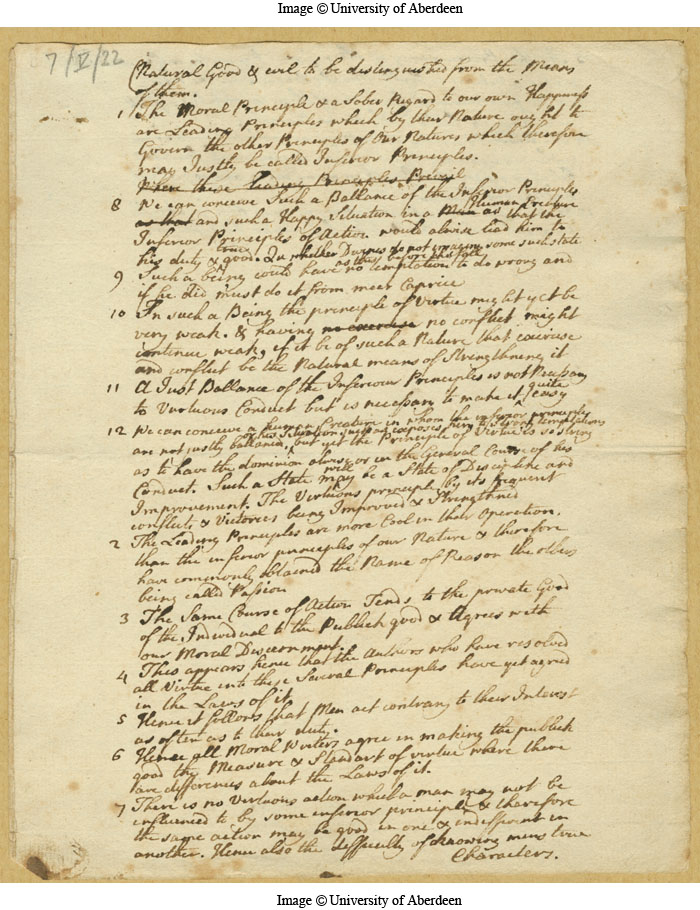 Image © University of Aberdeen
7/V/22
(Natural Good & evil to be distinguished from the Means
of them.
1 The Moral Principle & a Sober Regard to our own Happiness
are Leading Principles which by their Nature ought to
Govern the other Principles of Our Natures which therefore
may Justly be called Inferior Principles.
Where these leading Principles Prevail
8 We can conceive Such a Ballance of the Inferior Principles
as that and such a Happy Situation in a Man Human Creature as that the
Inferior Principles of Action would alwise lead him to
his duty & true good. Qu whether Divines do not imagine some such state
as this before the fall
9 Such a being could have no temptation to do wrong and
if he did must do it from meer Caprice
10 In such a Being the principle of Virtue might yet be
very weak. & having no exercise no conflict might
continue weak, if it be of such a Nature that exercise
and conflict be the Natural means of Strengthning it
11 A Just Ballance of the Inferiour Principles is not Necessary
to Virtuous Conduct but is necessary to make it quite easy
12 We can conceive a human Creature in whom the inferior principles
are not justly ballanced or his Situation such as exposes him to strong temptations
but yet the Principle of Virtue is so strong
as to have the dominion alwise or in the General Course of his
Conduct. Such a State will may be a State of Discipline and
Improvement. The Virtuous principle by its frequent
conflicts & Victories being Improved & Strengthned
2 The Leading Principles are more Cool in their Operation.
than the inferior principles of our Nature & therefore
have commonly obtained the Name of Reason the others
being called Passion
3 The Same Course of Action Tends to the private Good
of the Individual to the Publick good & Agrees with
our Moral Discernment.
4 This appears hence that the Authors who have resolved
all Virtue into these Several Principles have yet agreed
in the Laws of it
5 Hence it follows that Men act contrary to their Interest
as often as to their duty.
6 Hence all Moral Writers agree in making the publick
good the Measure & Standart of virtue where there
are differences about the Laws of it.
7 There is no Virtuous action which a man may not be
influenced to by some inferior principle & therefore
the same action may be good in one & indifferent in
another. Hence also the difficulty of knowing mens true
Characters.
Image © University of Aberdeen